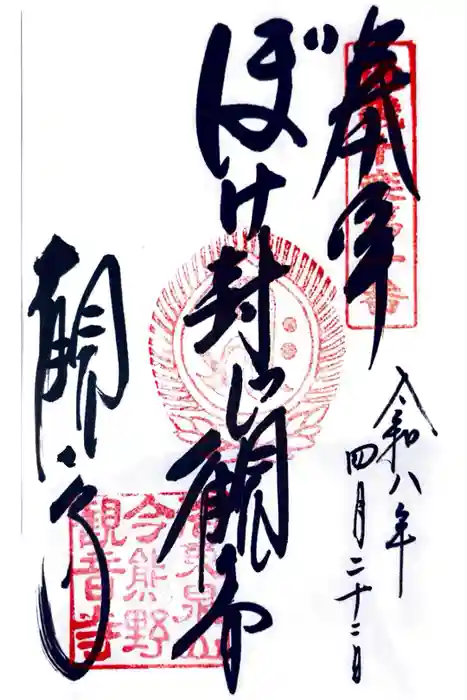 奉拝
令和八年
四月二十二日
ぼけ封じ観音
観音寺
今熊野
観音寺